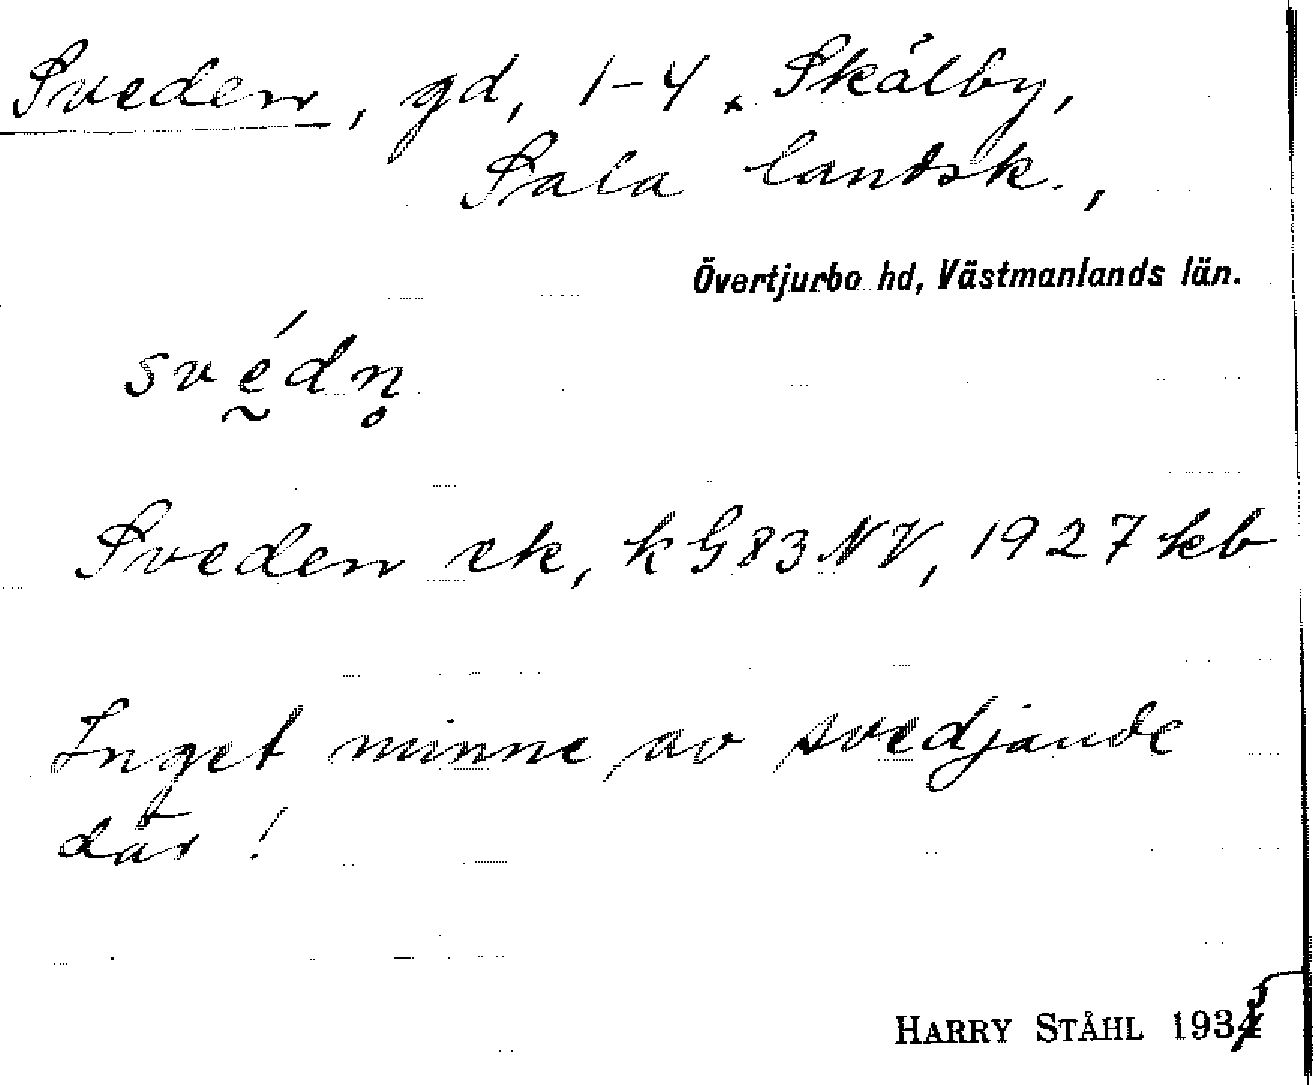 Sveden, gd, 1-4 Skälby,
Sala landsk.,
Övertjurbo hd, Västmanlands län.
svédn̥
Sveden ek, k G83NV, 1927 kb
Inget minne av svedjande
där!
HARRY STÅHL 1935